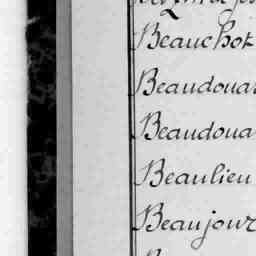 Beauchot
Beaudouar
Beaudoua
Beaulieu
Beaujour